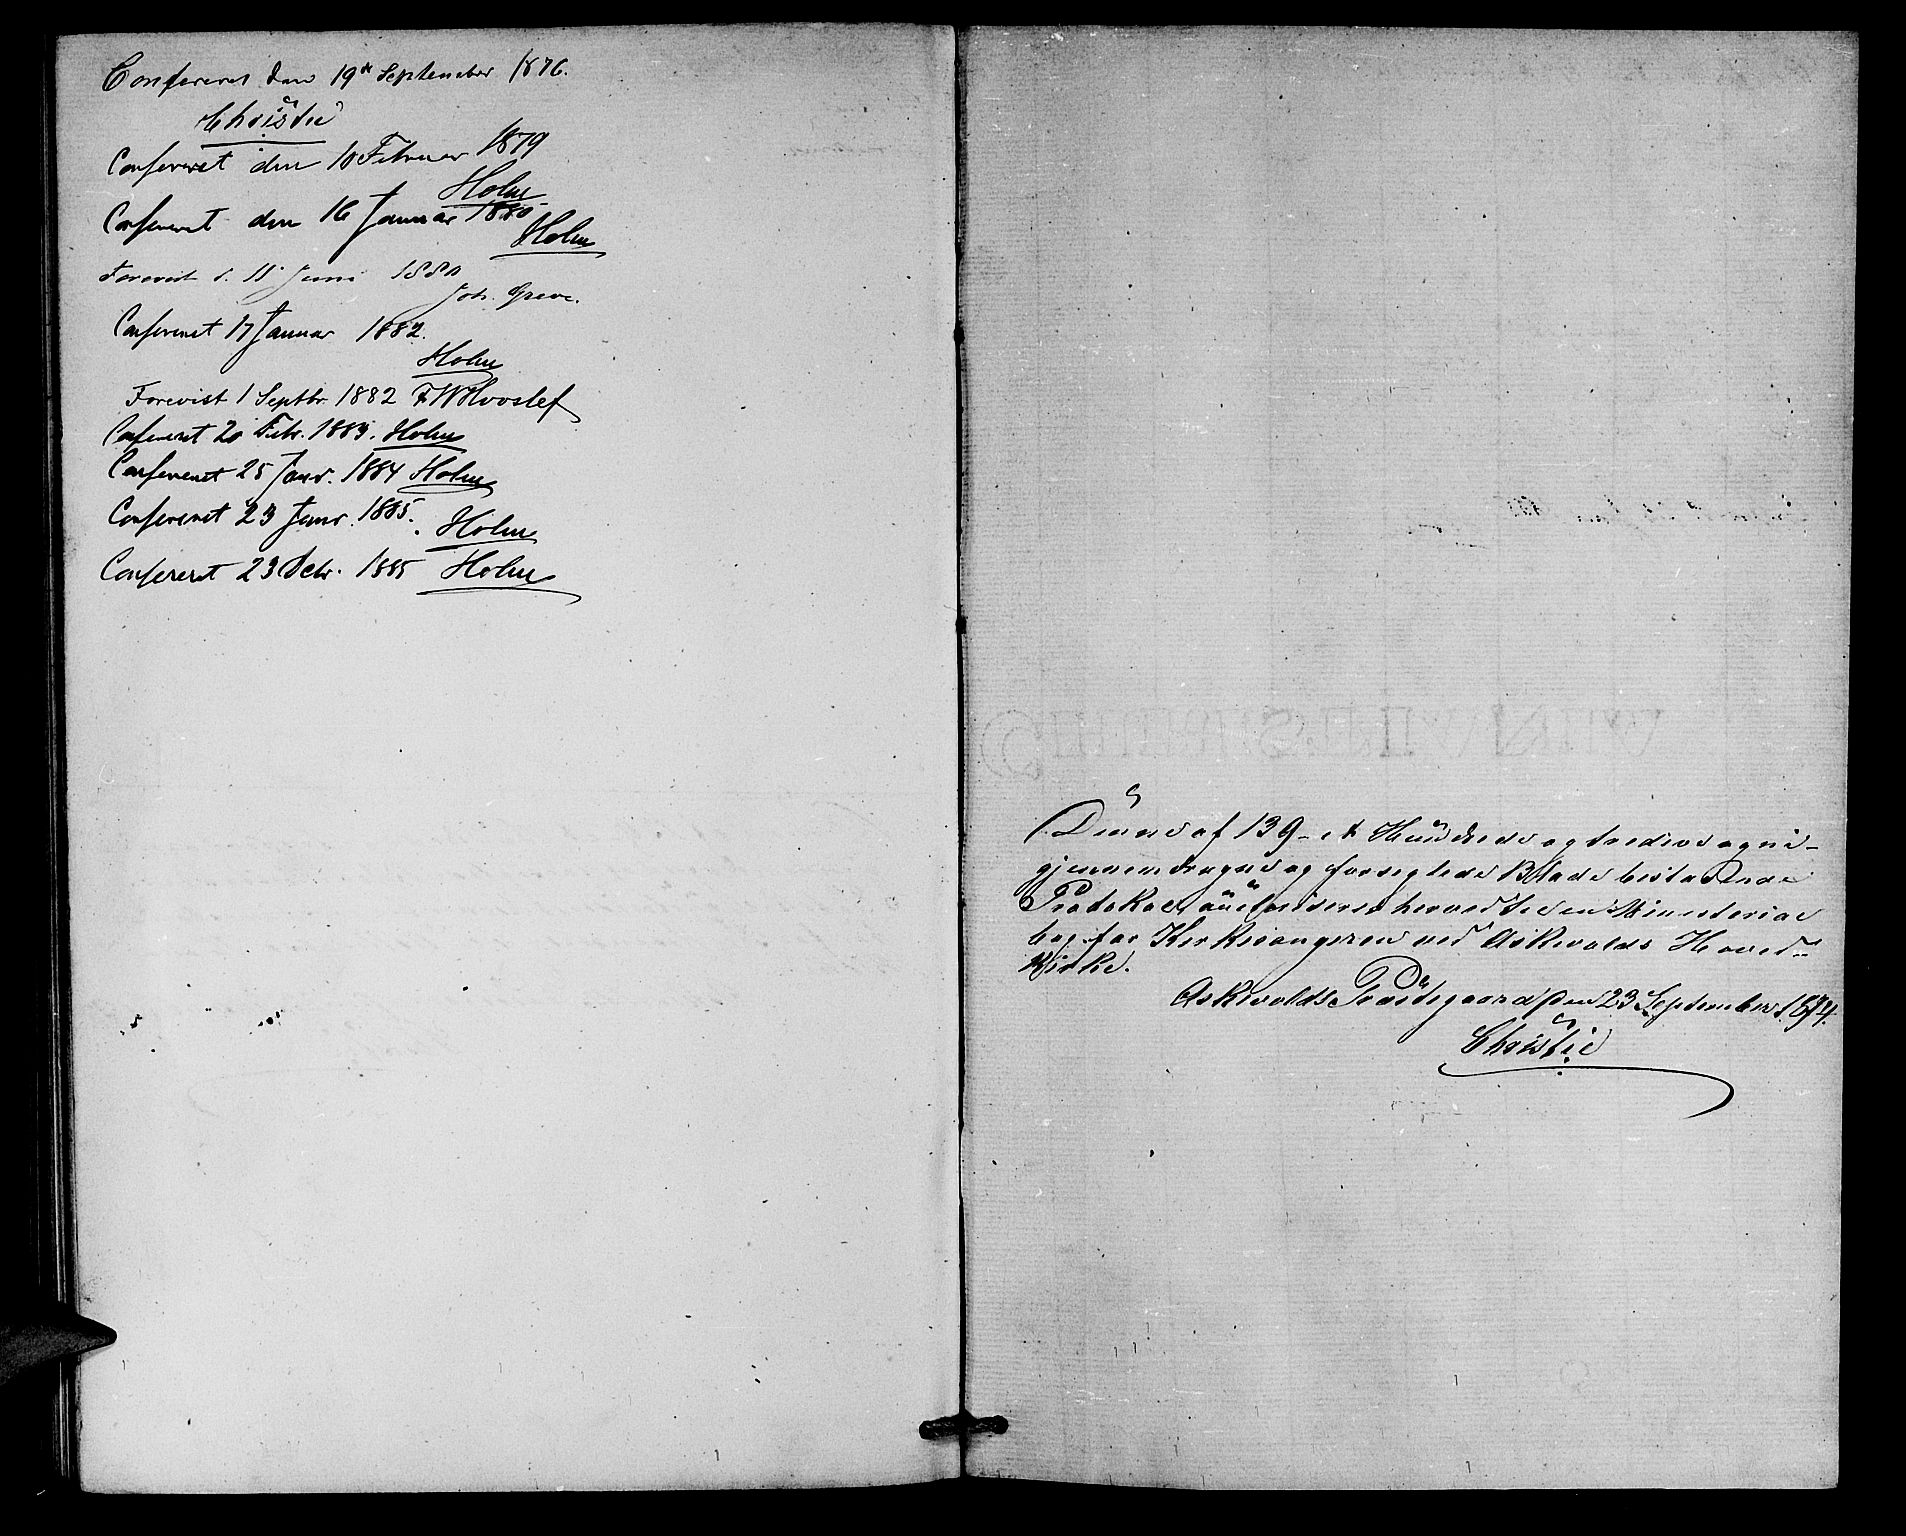 Confereret den 19de September 1876.
Christie
Confereret den 10 Februar 1879
Holm
Confereret den 16 Januar 1880
Holm
Forevist d. 11 Juni 1880
Joh. Greve.
Confereret 17 Januar 1882.
Holm
Forevist 1 Septbr. 1882 FWHvoslef
Confereret 20 Febr. 1883. Holm
Confereret 25 Janr. 1884 Holm
Confereret 23 Janr. 1885.
Holm
Confereret 23 Octr. 1885 Holm
CHRISTIANIA
Denne af 139 - et Hundrede og tredive og ni -
gjennemdragne og forseglede Blade bestaaende
Protokol, autoriseres herved til en Ministerial
bog for Kirkesangeren ved Askevolds Hoved-
Kirke.
Askevolds Præstegaard den 23 September 1874.
Christie